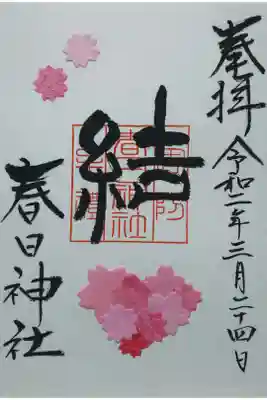 奉拝
令和二年三月二十四日
結
春日神社